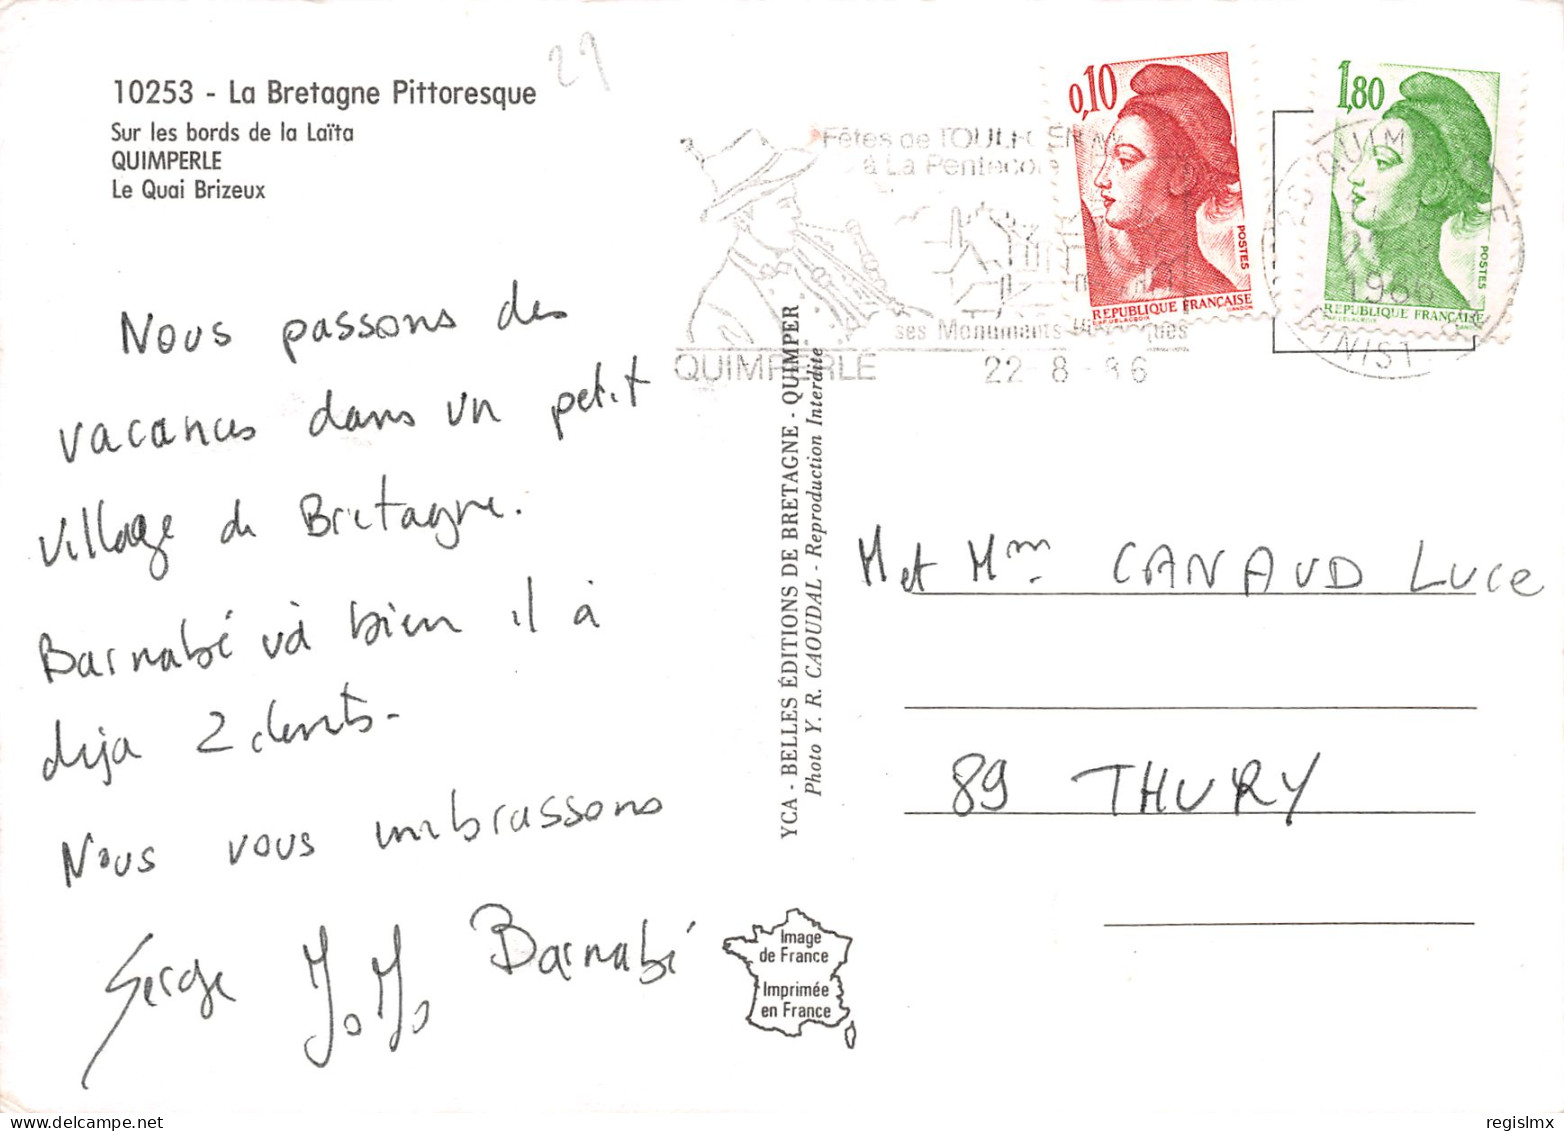 10253 - La Bretagne Pittoresque
Sur les bords de la Laïta
QUIMPERLE
Le Quai Brizeux
29
Nous passons des
vacances dans un petit
village de Bretagne.
Barnabé và bien il à
deja 2 dents.
Nous vous embrassons
Serge JoJo Barnabé
Fêtes de TOULFOEN
à La Pentecote
ses Monuments Historiques
QUIMPERLE 22-8-86
0,10
POSTES
REPUBLIQUE FRANÇAISE
1,80
POSTES
REPUBLIQUE FRANÇAISE
1986
YCA - BELLES ÉDITIONS DE BRETAGNE - QUIMPER
Photo Y. R. CAOUDAL - Reproduction Interdite
M et Mm CANAUD Luce
89 THURY
Image
de France
Imprimée
en France
regislmx